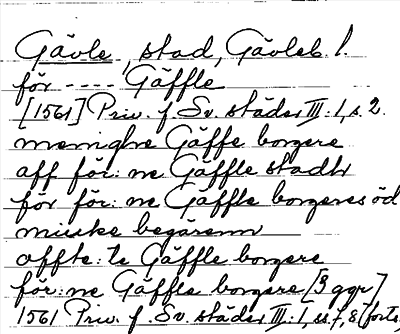 Gävle, stad, Gävleb. l.
för ---- Gäffle
[1561] Priv. f. Sv. städer III:1, s. 2.
menighe Gäffe borgere
aff för:ne Gäffle stadh
för för:ne Gäffle borgeres öd
miuke begärenn
offte:te Gäffle borgere
för:ne Gäffle borgere [3 ggr]
1561 Priv. f. Sv. städer III:1, ss. 7, 8 (forts